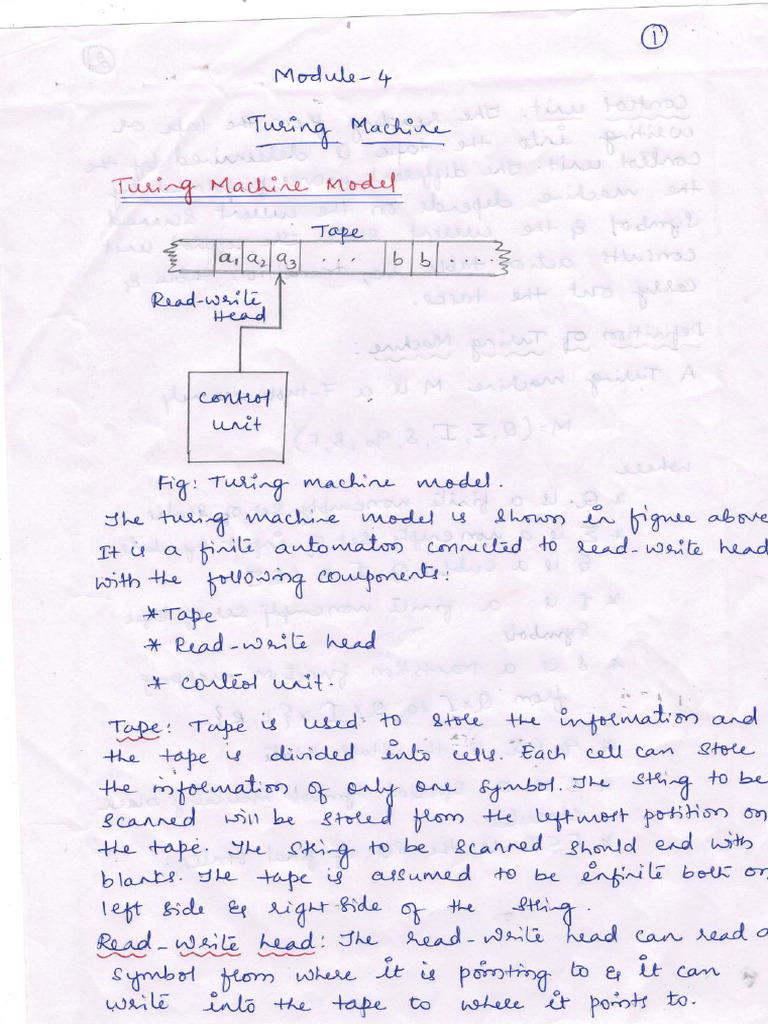 1
Module-4
Turing Machine
Turing Machine Model
Tape
a1 a2 a3 ... b b ....
Read-write
Head
control
unit
Fig: Turing machine model.
The turing machine model is shown in figure above
It is a finite automaton connected to read-write head
with the following components:
* Tape
* Read-write head
* control unit.
Tape: Tape is used to store the information and
the tape is divided into cells. Each cell can store
the information of only one symbol. The string to be
scanned will be stored from the leftmost position on
the tape. The string to be scanned should end with
blanks. The tape is assumed to be infinite both on
left side & right side of the string.
Read-write head: The read-write head can read a
symbol from where it is pointing to & it can
write into the tape to where it points to.